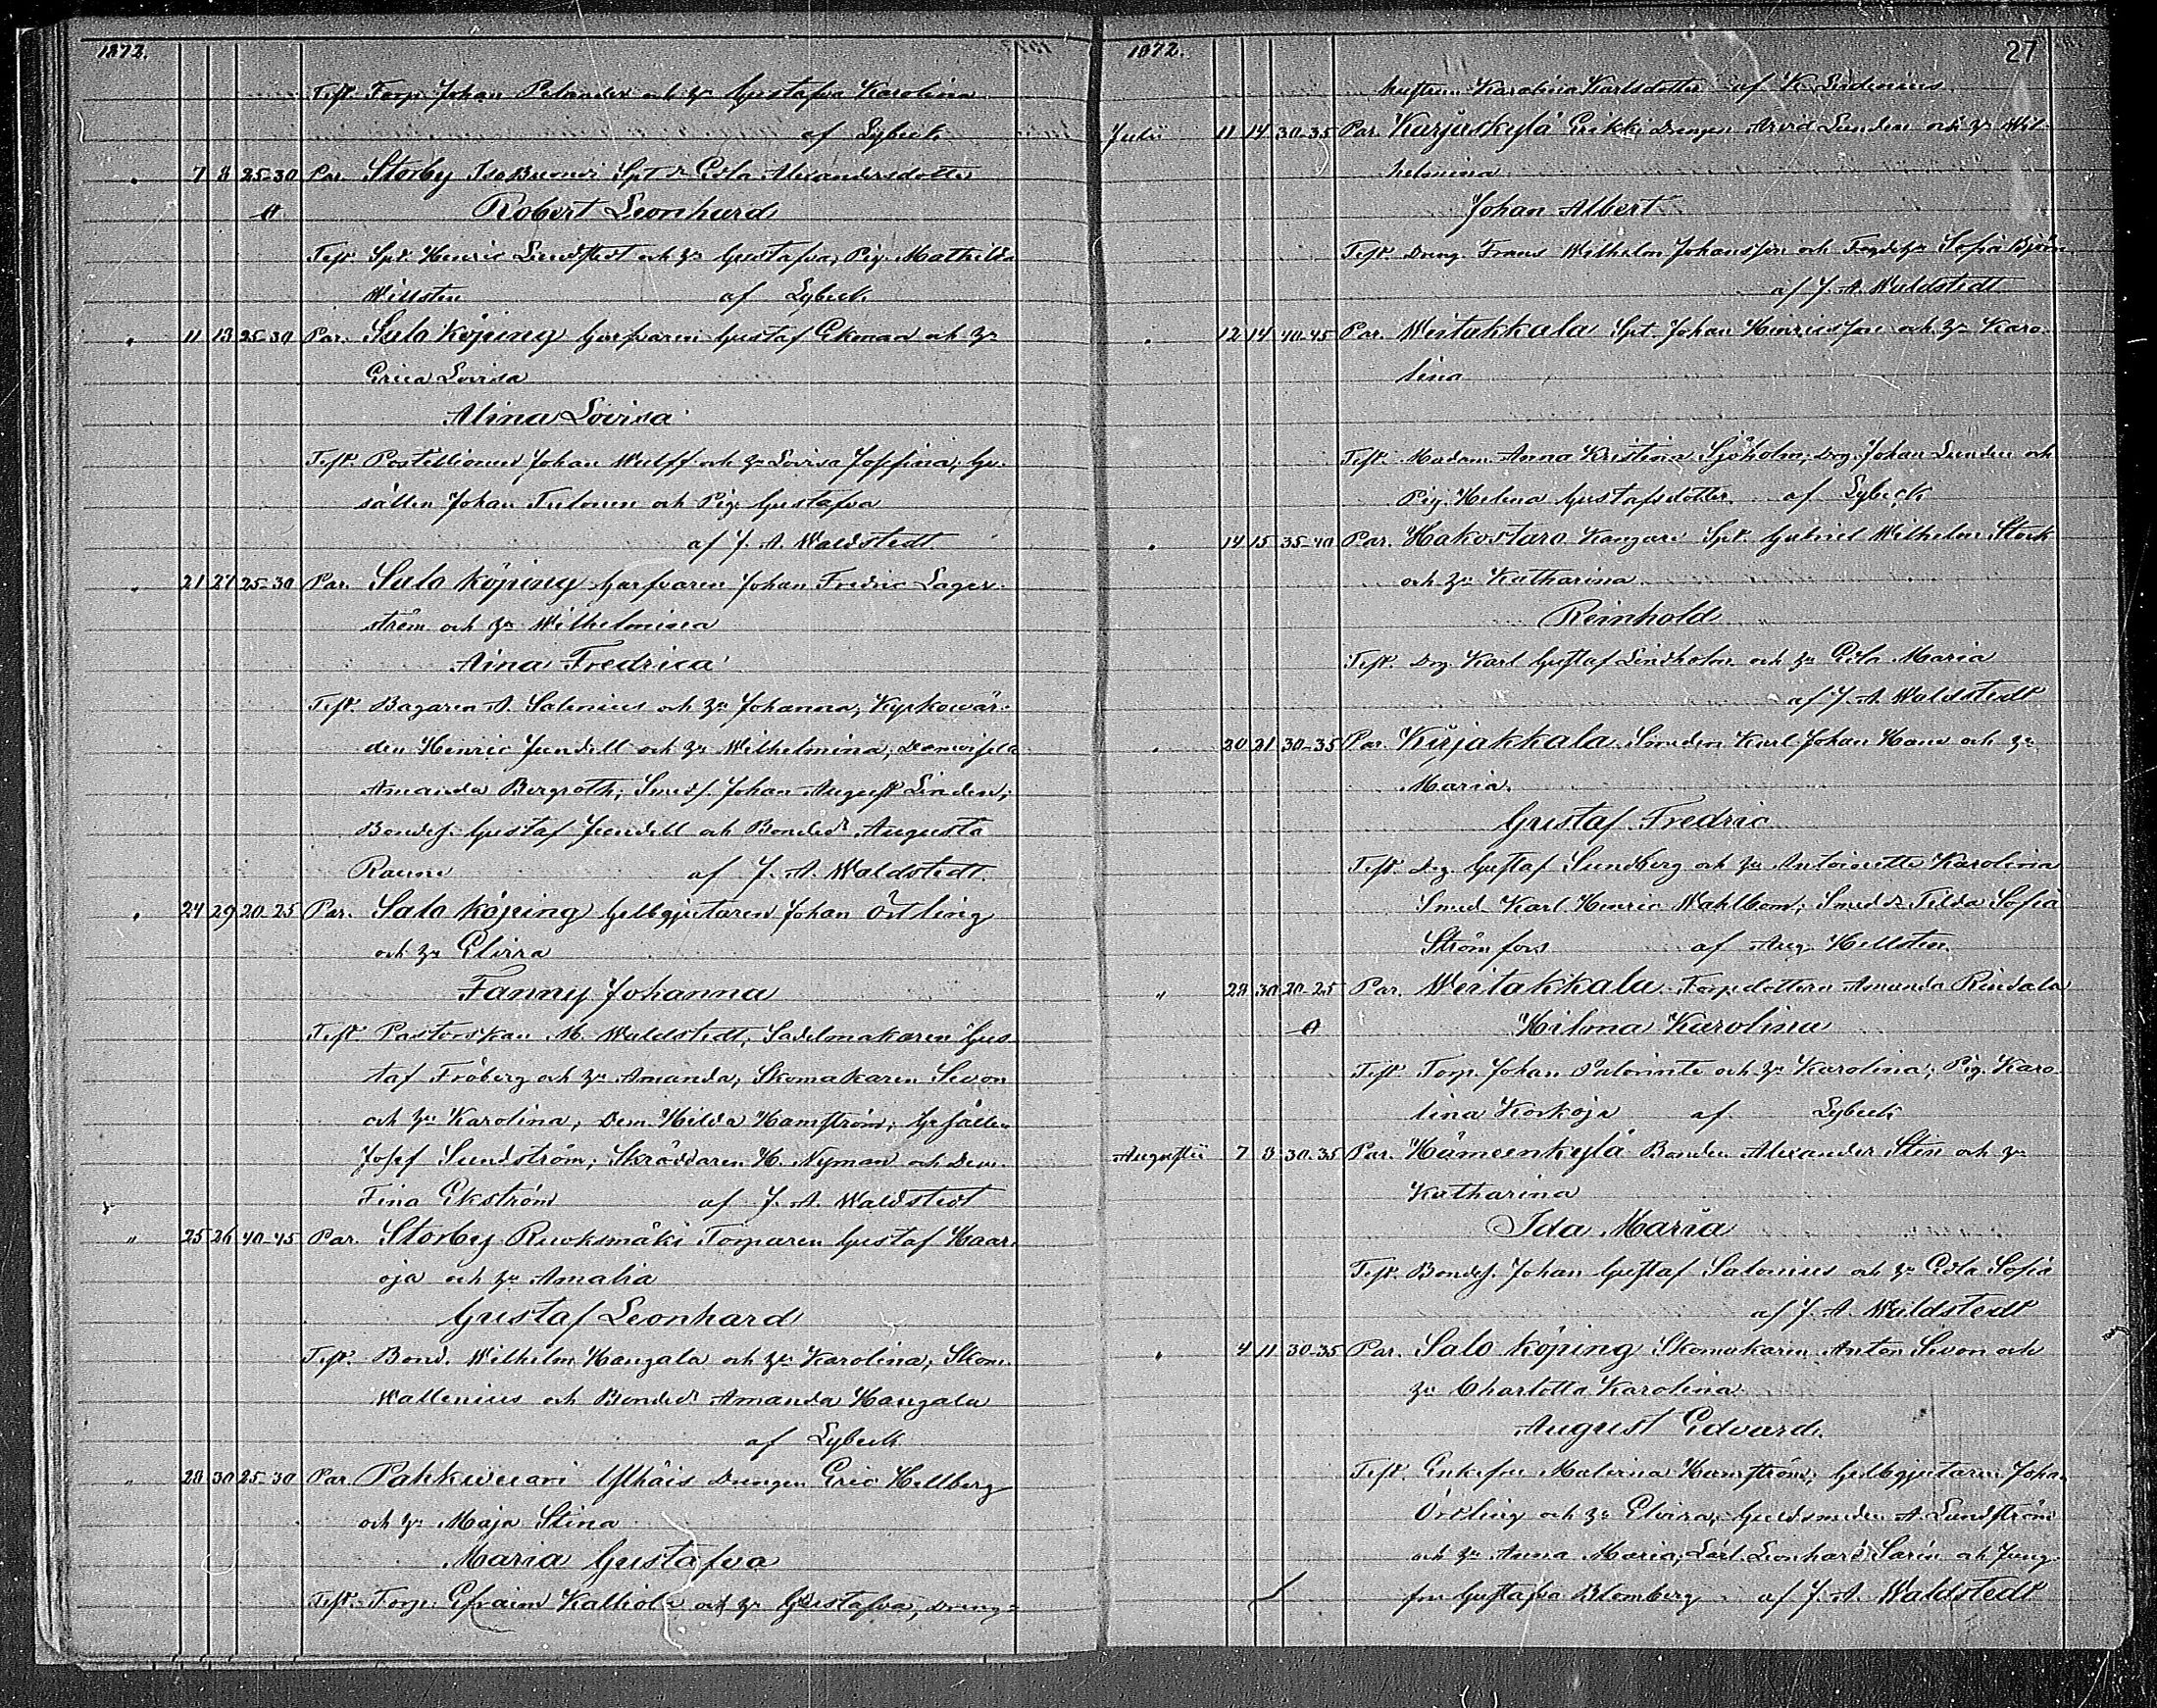 1872.
Test. Torp. Johan Pelander och h:u Gustafva Karolina
af Lybeck
" 7 8 25-30 Par. Storby Isobuonoi Spt dr Eda Alexandersdotter
A Robert Leonhard
Test. Spt. Henric Lundstedt och h:u Gustafva, Pig. Mathilda
Willsten af Lybeck
" 11 13 25-30 Par. Salo köping Garfvaren Gustaf Ekman och h:u
Erica Lovisa
Alina Lovisa
Test. Postillionen Johan Wulff och h:u Lovisa Josefina, Ge-
sällen Johan Tulonen och Pig. Gustafva
af J. A. Waldstedt
" 21 27 25-30 Par. Salo köping Garfvaren Johan Fredric Lager-
ström och h:u Wilhelmina
Aina Fredrica
Test. Bagaren A. Salenius och h:u Johanna, Kyrkovär-
den Henric Jundell och h:u Wilhelmina, Demoiselle
Amanda Bergroth; Smeds. Johan August Linden;
Bondes. Gustaf Jundell och Bonded. Augusta
Rauno af J. A. Waldstedt.
" 24 29 20-25 Par. Salo köping Gelbgjutaren Johan Örtling
och h:u Elvira
Fanny Johanna
Test. Pastorskan M. Waldstedt, Sadelmakaren Gus-
taf Fröberg och h:u Amanda, Skomakaren Sevon
och h:u Karolina, Dem. Hilda Hamström, Gesällen
Josef Sundström, Skräddaren H. Nyman och Dem.
Fina Ekström af J. A. Waldstedt
" 25 26 40-45 Par. Storby Ruoksmäki Torparen Gustaf Haar-
oja och h:u Amalia
Gustaf Leonhard
Test. Bond. Wilhelm Hangala och h:u Karolina, Skom.
Wallenius och Bonded. Amanda Hangala
af Lybeck
" 28 30 25-30 Par. Pahkavuori Ylhäis Drengen Eric Hellberg
och h:u Maja Stina
Maria Gustafva
Test. Torp. Efraim Kalliola och h:u Gustafva, Dreng-
1872. 27
hustrun Karolina Karlsdotter af K. Lindenius.
Julii 11 14 30-35 Par. Kurjaskylä Erikki Drengen Arvid Lunden och h:u Wil-
helmina
Johan Albert
Test. Dreng. Frans Wilhelm Johansson och Sofia Björn
af J. A. Waldstedt
" 12 14 40-45 Par. Weitakkala Spt. Johan Henricsson och h:u Karo-
lina
Test. Madam Anna Kristina Sjöholm, Drg. Johan Lunden och
Pig. Helena Gustafsdotter af Lybeck
" 14 15 35-40 Par. Hakostaro Kangare Spt. Gabriel Wilhelm Stork
och h:u Katharina
Reinhold
Test. Drg. Karl Gustaf Lindholm och h:u Eda Maria
af J. A. Waldstedt
" 20 21 30-35 Par. Kurjakkala Smeden Karl Johan Hane och h:u
Maria.
Gustaf Fredric
Test. Drg. Gustaf Sundberg och h:u Antoinette Karolina
Smed. Karl Henric Wahlbom, Smed. dr Tilda Sofia
Strömfors af Aug. Hellsten.
" 28 30 20-25 Par. Weitakkala Torpdottern Amanda Rindala
A Hilma Karolina
Test. Torp. Johan Palovinte och h:u Karolina; Pig. Karo-
lina Korkoja af Lybeck
Augustii 7 8 30-35 Par. Hämeenkylä Bonden Alexander Sten och h:u
Katharina
Ida Maria
Test. Bondes. Johan Gustaf Salonius och h:u Eda Sofia
af J. A. Waldstedt
" 4 11 30-35 Par. Salo köping Skomakaren Anton Sevon och
h:u Charlotta Karolina
August Edvard.
Test. Enkefru Malvina Hamström, Gelbgjutaren Johan
Örtling och h:u Elvira, Guldsmeden A. Lundström
och h:u Anna Maria, Lärl. Leonhard Sarin och Jung-
fru Gustafva Blomberg af J. A. Waldstedt